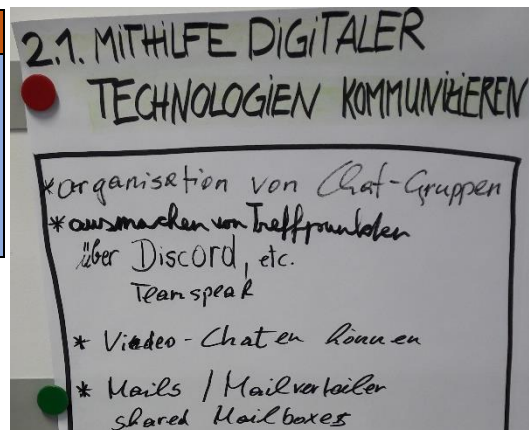 2.1. MITHILFE DIGITALER
TECHNOLOGIEN KOMMUNIZIEREN
*organisation von Chat-Gruppen
*ausmachen von Treffpunkten
über Discord, etc.
Teamspeak
* Viedeo-Chaten können
* Mails / Mailverteiler
shared Mailboxes